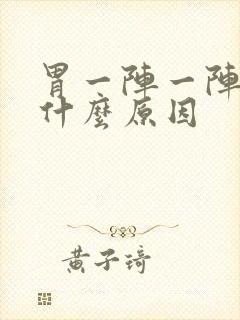 胃一陣一陣
什麼原因
黃子琦